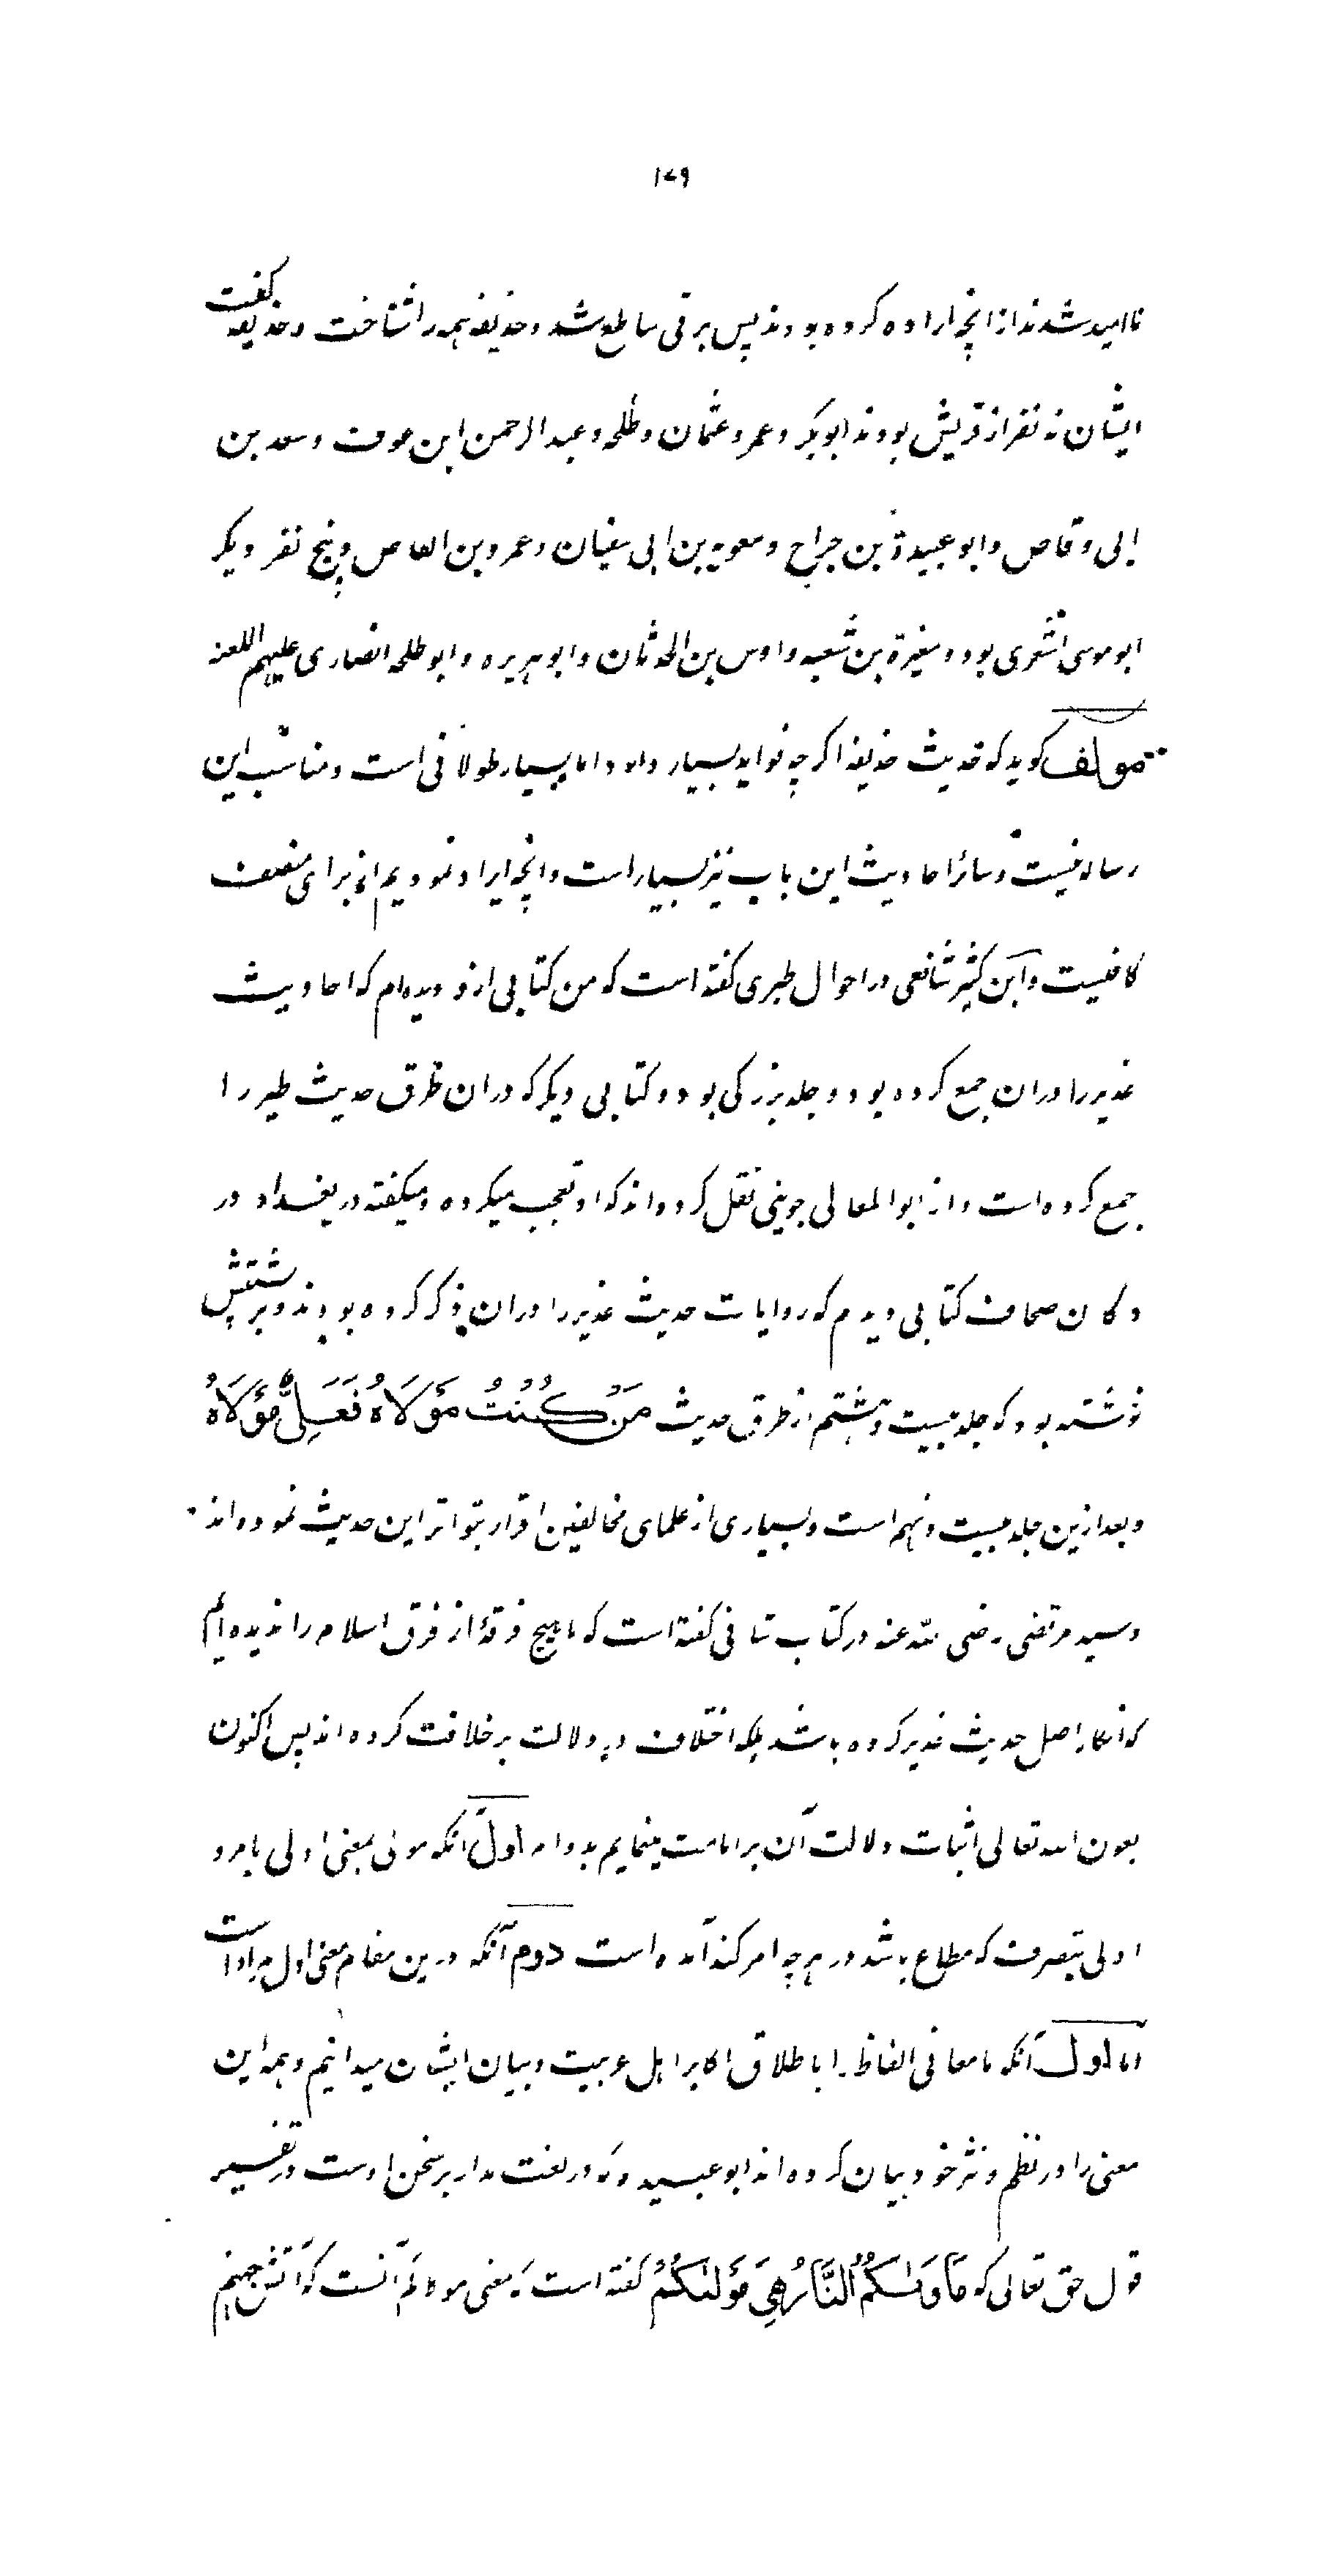 ۱۷۹
ناامید شدند از انچه اراده کرده بودند پس برقی ساطع شد و حذیفه همه را شناخت و حذیفه گفت
ایشان نه نفر از قریش بودند ابوبکر و عمر و عثمان و طلحه و عبد الرحمن ابن عوف و سعد بن
ابی وقاص و ابو عبیدة بن جراح و معویه بن ابی سفیان و عمرو بن العاص و پنج نفر دیگر
ابو موسی اشعری بود و مغیرة بن شعبه و اوس بن الحدثان و ابو هریره و ابو طلحه انصاری علیهم اللعنه
مولف گوید که حدیث حذیفه اگر چه فواید بسیار دارد اما بسیار طولانی است و مناسب این
رساله نیست و سائر احادیث این باب نیز بسیار است و انچه ایراد نمودیم از برای منصف
کافیست و ابن کثیر شافعی در احوال طبری گفته است که من کتابی ازو دیده ام که احادیث
غدیر را در ان جمع کرده بود دو جلد بزرگی بود و کتابی دیگر که در ان طرق حدیث طیر را
جمع کرده است و از ابو المعالی جوینی نقل کرده اند که او تعجب میکرده و میگفته در بغداد در
دکان صحاف کتابی دیدم که روایات حدیث غدیر را در ان ذکر کرده بودند و بر پشتش
نوشته بود که جلد بیست و هشتم از طرق حدیث مَنْ كُنْتُ مَوْلَاهُ فَعَلِیٌّ مَوْلَاهُ
و بعد ازین جلد بیست و نهم است و بسیاری از علمای مخالفین اقرار بتواتر این حدیث نموده اند
و سید مرتضی رضی الله عنه در کتاب شافی گفته است که ما هیچ فرقهٔ از فرق اسلام را ندیده ایم
که انکار اصل حدیث غدیر کرده باشد بلکه اختلاف در دلالت بر خلافت کرده اند پس اکنون
بعون الله تعالی اثبات دلالت آن بر امامت مینمایم بدو امر اول آنکه مولی بمعنی اولی بامر و
اولی بتصرف که مطاع باشد در هر چه امر کند آمده است دوم آنکه درین مقام معنی اول مراد است
اما اول آنکه ما معانی الفاظ را باطلاق اکابر اهل عربیت و بیان ایشان میدانیم و همه این
معنی را در نظم و نثر خود بیان کرده اند ابو عبیده که در لغت مدار بر سخن اوست در تفسیر
قول حق تعالی که مَاْوٰىكُمُ النَّارُ هِیَ مَوْلٰىكُمْ گفته است که معنی مولاکم آنست که آتش جهنم